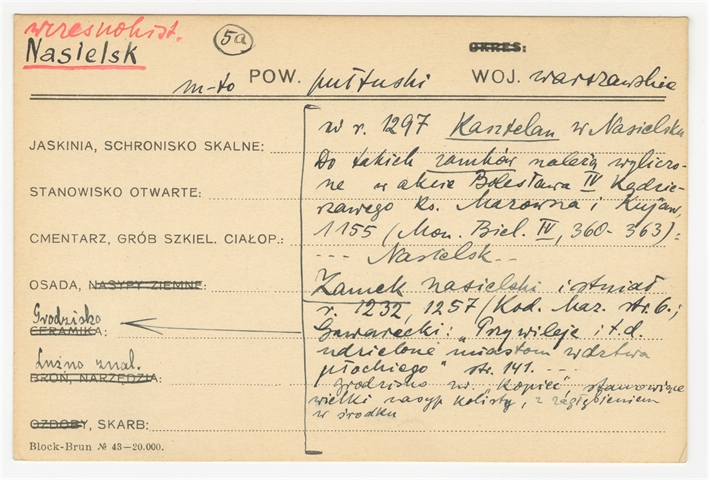 wczesnohist.
Nasielsk
5a
OKRES:
m-to POW. pułtuski WOJ. warszawskie
JASKINIA, SCHRONISKO SKALNE:
STANOWISKO OTWARTE:
CMENTARZ, GRÓB SZKIEL. CIAŁOP.:
OSADA, NASYPY ZIEMNE:
Grodzisko
CERAMIKA:
Luźno znal.
BROŃ, NARZĘDZIA:
OZDOBY, SKARB:
Block-Brun № 43—20.000.
w r. 1297 Kasztelan w Nasielsku
Do takich zamków należą wyliczo-
ne w akcie Bolesława IV Kędzie-
rzawego ks. Mazowsza i Kujaw,
1155 (Mon. Biel. IV, 360-363):
--- Nasielsk --
Zamek nasielski istniał
r. 1232, 1257 (Kod. Maz. str. 6.;
Gawarecki: "Przywileje i t.d.
udzielone miastom wdztwa
płockiego" str. 141. ---
grodzisko zw. "Kopiec" stanowiące
wielki nasyp kolisty, z zagłębieniem
w środku